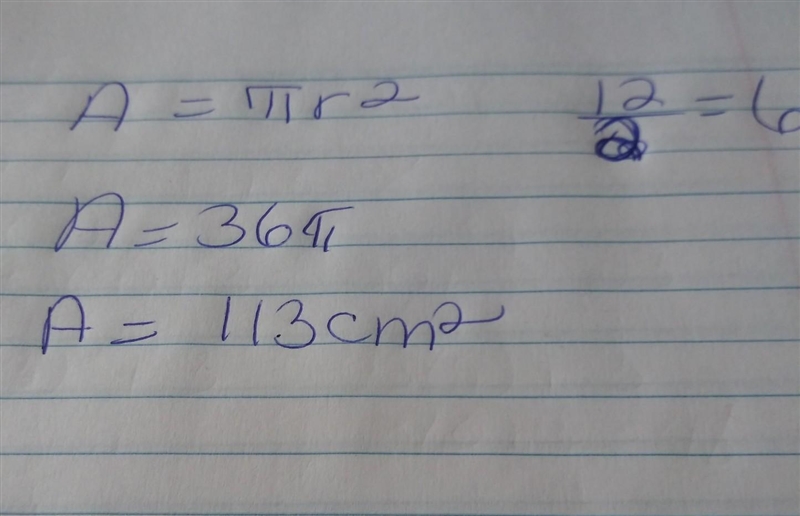 A = πr2
12/2 = 6
A = 36π
A = 113cm²